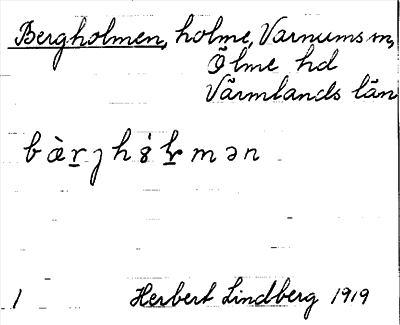 Bergholmen, holme, Varnums sn,
Ölme hd
Värmlands län
1 Herbert Lindberg 1919